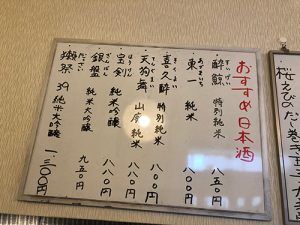 おすすめ日本酒
すいげい
酔鯨 特別純米 八五〇円
あずまいち
東一 純米 八〇〇円
きくよい
喜久酔 特別純米 八〇〇円
天狗舞 山廃純米 八八〇円
ほうけん
宝剣 純米吟醸 八八〇円
ぎんばん
銀盤 純米大吟醸 九五〇円
だっさい
獺祭 39 純米大吟醸 一三〇〇円
桜えびのだし巻き玉子